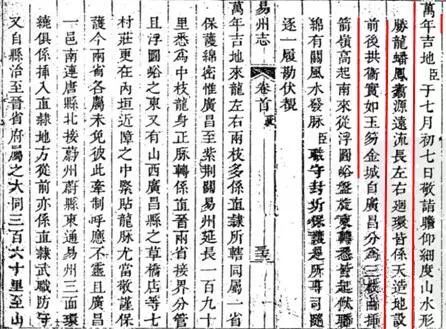 萬年吉地臣于七月初七日敬詣瞻仰細度山水形
勝龍蟠鳳翥源遠流長左右迴環皆係天造地設
前後拱衛實如玉笏金城自廣昌分為三樓曲折
箭嶺高起南來從浮圖峪盤旋更轉悉皆起伏聯
綿有關風水發脉臣職守封圻保護是所專司
逐一履勘伏覩
易州志
卷首
萬年吉地來龍左右兩枝多係直隸所轄同屬一省
保護綿密惟廣昌至紫荆關易州延長一百九十
里悉為中枝龍身正脉轉係直晉兩省接界分管
且浮圖峪之東又有山西廣昌縣之草橋店等七
村莊更在內垣近障之中緊貼龍脉尤當敬謹保
護今兩省各屬未免彼此牽制呼應不靈且廣昌
一邑南連唐縣北接蔚州蔚縣東通易州三面環
繞俱係插入直隸地方從前亦係直隸武職防守
又自縣治至晉省府屬之大同三百六十里至山